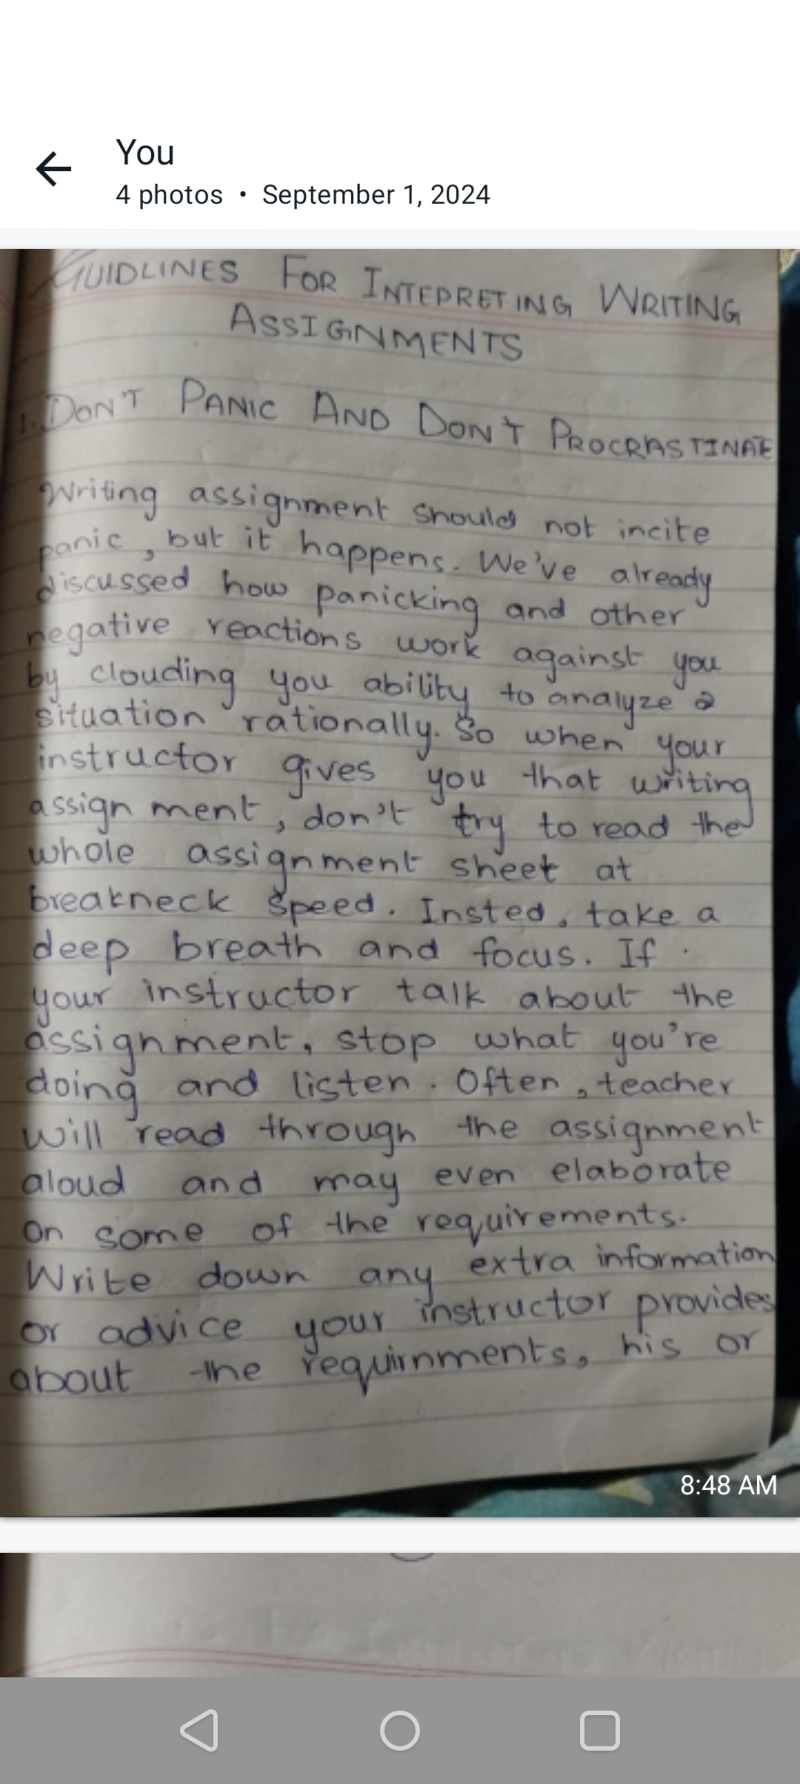 You
4 photos • September 1, 2024
GUIDLINES FOR INTEPRETING WRITING
ASSIGNMENTS
1. DON'T PANIC AND DON'T PROCRASTINATE
Writing assignment should not incite
panic, but it happens. We've already
discussed how panicking and other
negative reactions work against you
by clouding you ability to analyze a
situation rationally. So when your
instructor gives you that writing
assign ment, don't try to read the
whole assignment sheet at
breakneck speed. Insted, take a
deep breath and focus. If
your instructor talk about the
assignment, stop what you're
doing and listen. Often, teacher
will read through the assignment
aloud and may even elaborate
on some of the requirements.
Write down any extra information
or advice your instructor provides
about the requirnments, his or
8:48 AM